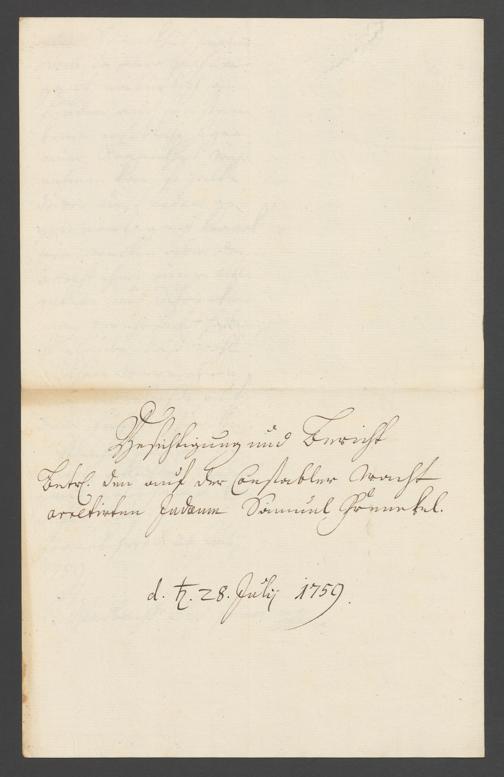 Besichtigung und Bericht
Betrf. den auf der Constabler Wacht
arretirten Judaeum Samuel Fraenckel.
d. ♄. 28. July 1759.